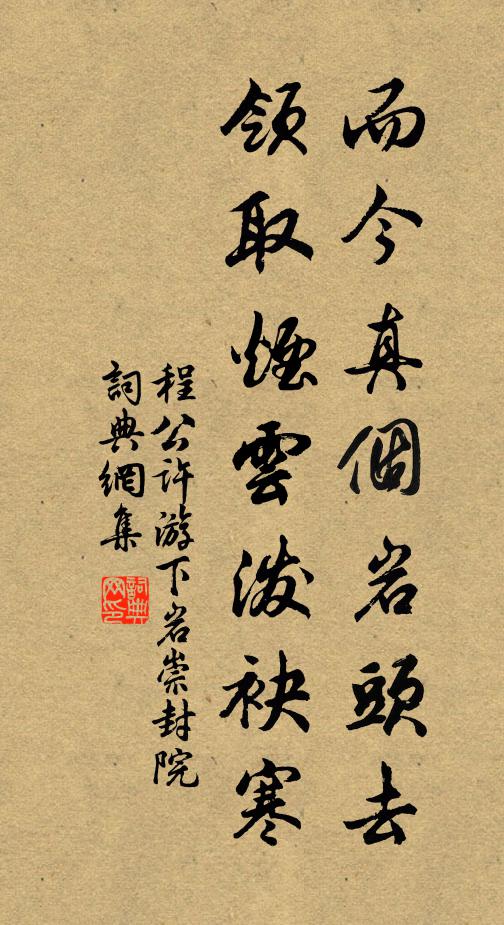 而今真個岩頭去
領取煙雲潑袂寒
程公許游下岩崇封院
詞典網集
詞典网印